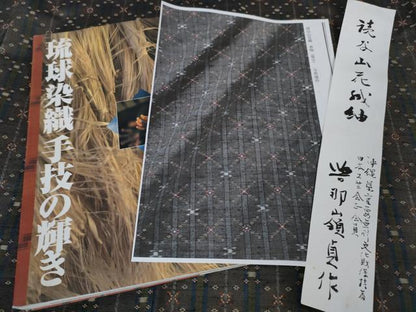 琉球染織手技の輝き
読谷山花織紬
沖縄県無形文化財保持者
日本工芸会正会員
與那嶺貞作